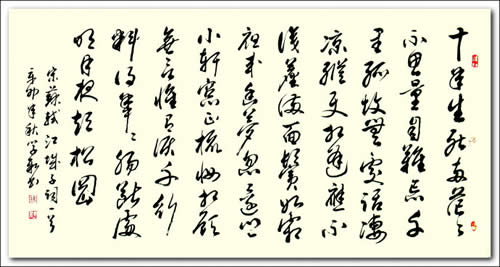 十年生死兩茫々
不思量自難忘千
里孤墳無處話淒
涼縱使相逢應不
識塵滿面鬢如霜
夜來幽夢忽還鄉
小軒窗正梳妝相顧
無言惟有淚千行
料得年々腸斷處
明月夜短松岡
宋蘇軾江城子詞一首
辛卯年秋書